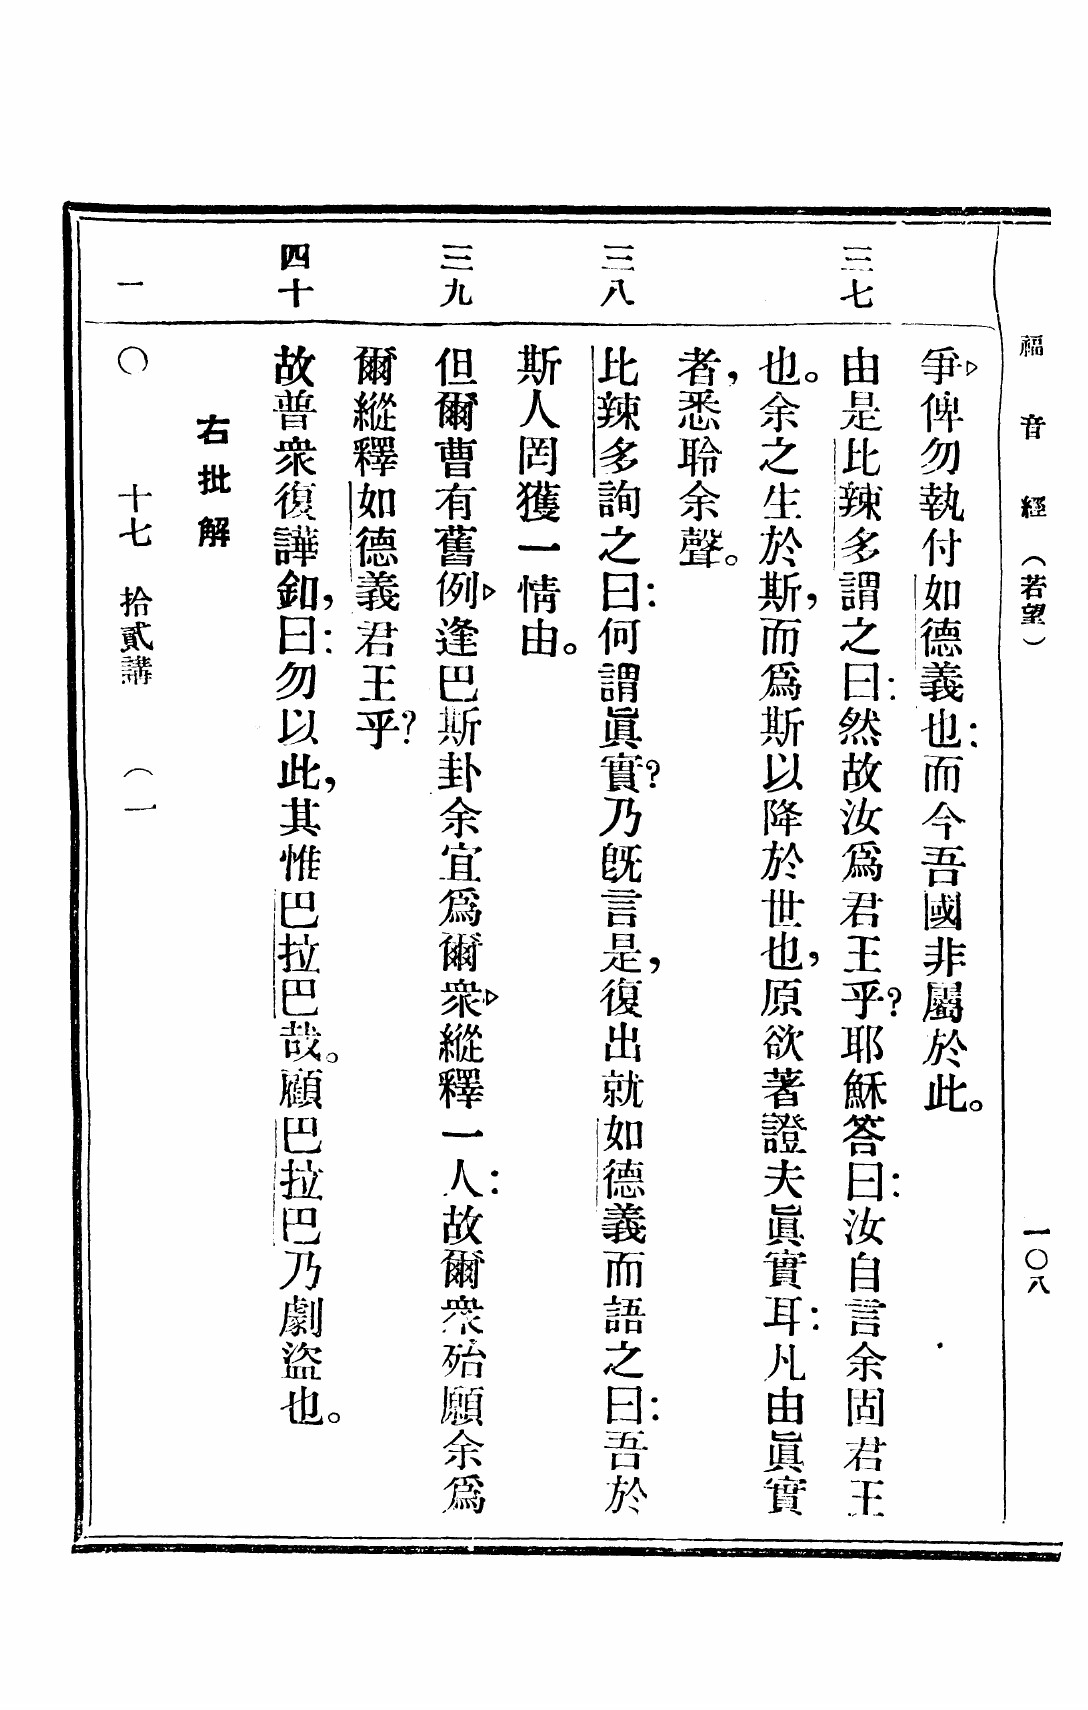 福音經（若望）　一〇八
爭▷俾勿執付如德義也：而今吾國非屬於此。
三七　由是比辣多謂之曰：然故汝爲君王乎？耶穌答曰：汝自言余固君王
也。余之生於斯，而爲斯以降於世也，原欲著證夫眞實耳：凡由眞實
者，悉聆余聲。
三八　比辣多詢之曰：何謂眞實？乃旣言是，復出就如德義而語之曰：吾於
斯人罔獲一情由。
三九　但爾曹有舊例▷逢巴斯卦余宜爲爾衆▷縱釋一人：故爾衆殆願余爲
爾縱釋如德義君王乎？
四十　故普衆復譁釦，曰：勿以此，其惟巴拉巴哉。顧巴拉巴乃劇盜也。
右批解
一　〇　十七　拾貳講　（一